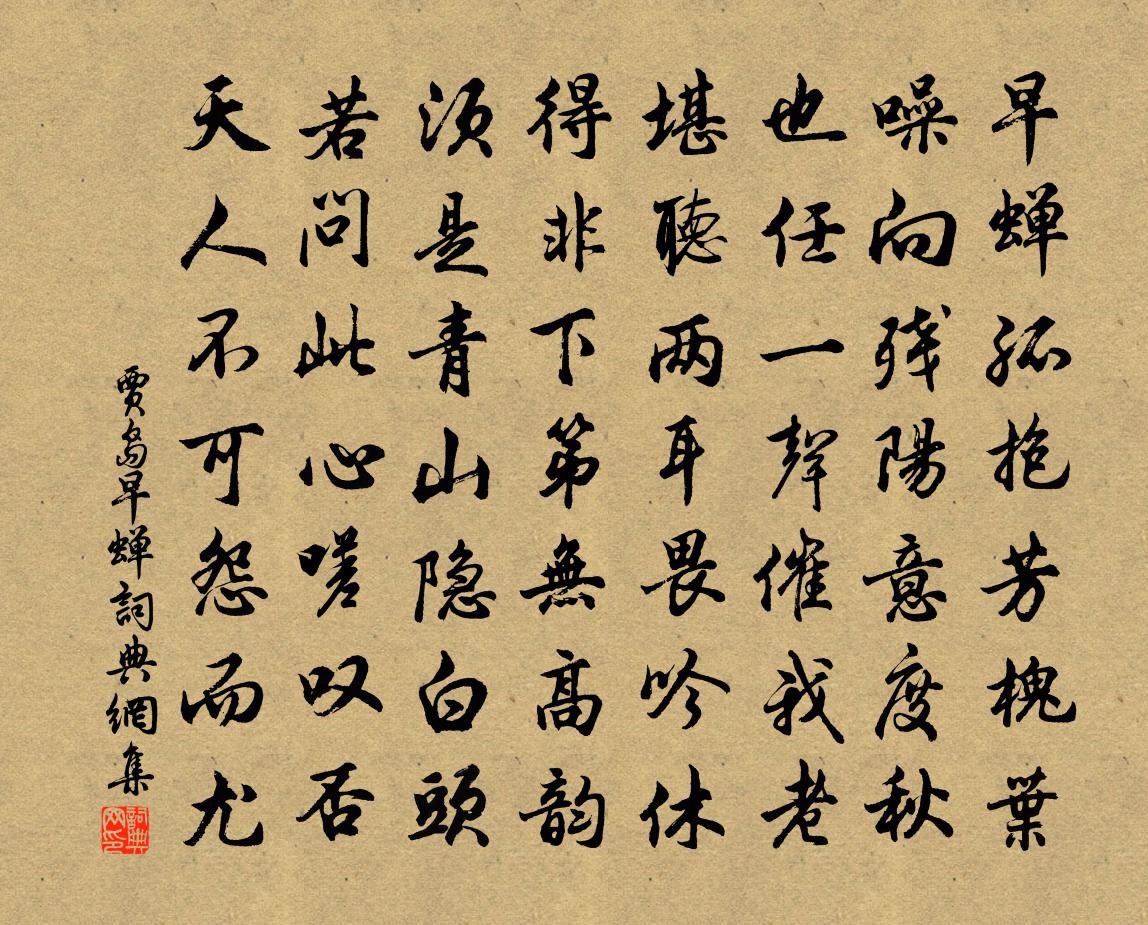 早蝉孤抱芳槐葉
噪向残陽意度秋
也任一聲催我老
堪聽两耳畏吟休
得非下第無高韵
須是青山隐白頭
若問此心嗟叹否
天人不可怨而尤
賈島早蝉詞典網集
詞典网印